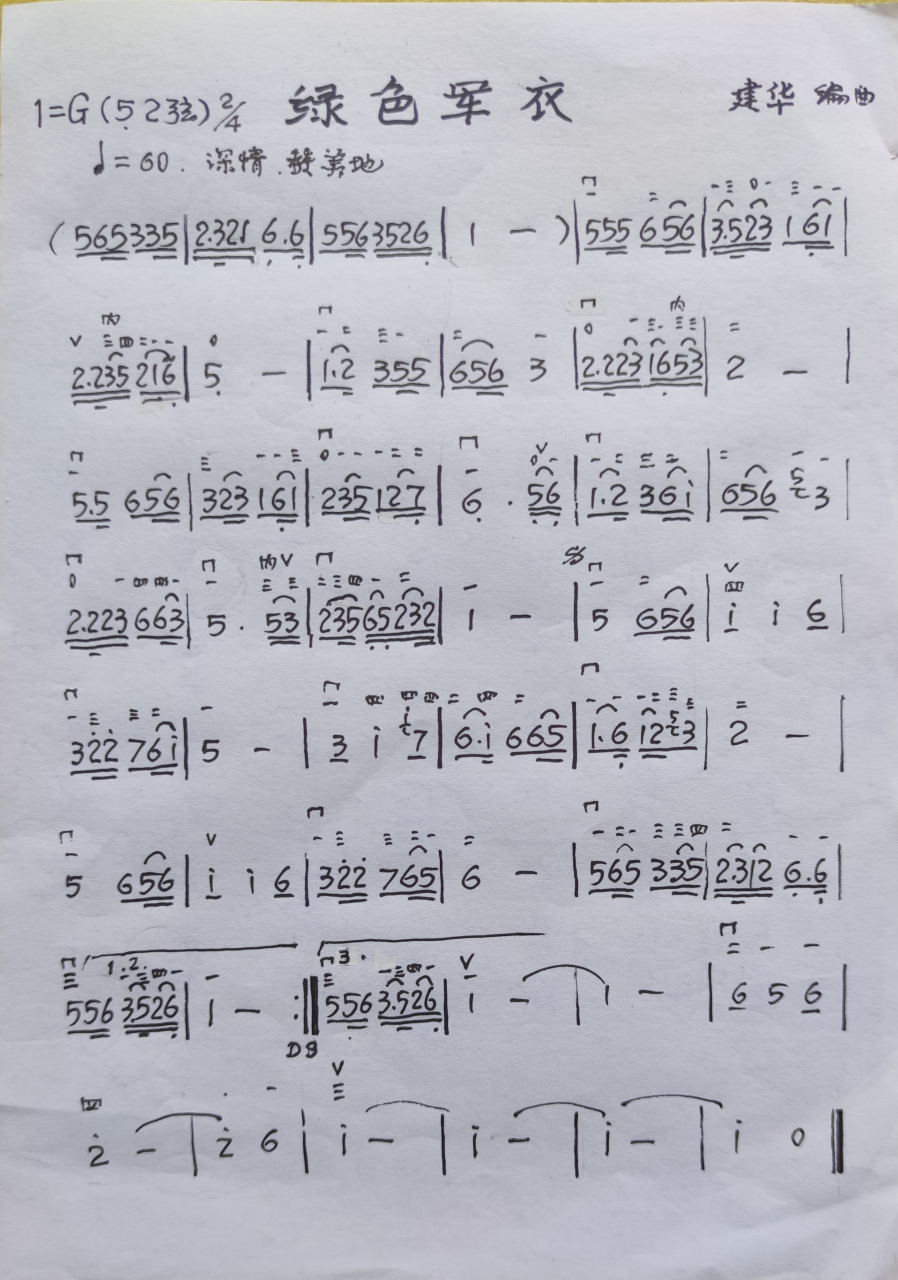 1=G(5̣ 2弦) 2/4 绿色军衣 建华 编曲
♩=60. 深情.赞美地
(565335|2.321 6.6|5563526|1 -)|555 656|3.523 161|
2.235 216|5 -|1.2 355|656 3|2.223 1653|2 -|
5.5 656|323 161|235127|6 . 56|1.2 36i|656 5 3|
2.223 663|5 . 53|23565232|1 -|5 656|i i 6|
322 76i|5 -|3 i i 7|6.i 665|1.6 12 5 3|2 -|
5 656|i i 6|322 765|6 -|565 335|2312 6.6|
1.2. 3.
556 3.526|1 -:‖556 3.526|1 -|1 -|6 5 6|
DS
2 -|2 6|i -|i -|i -|i 0‖